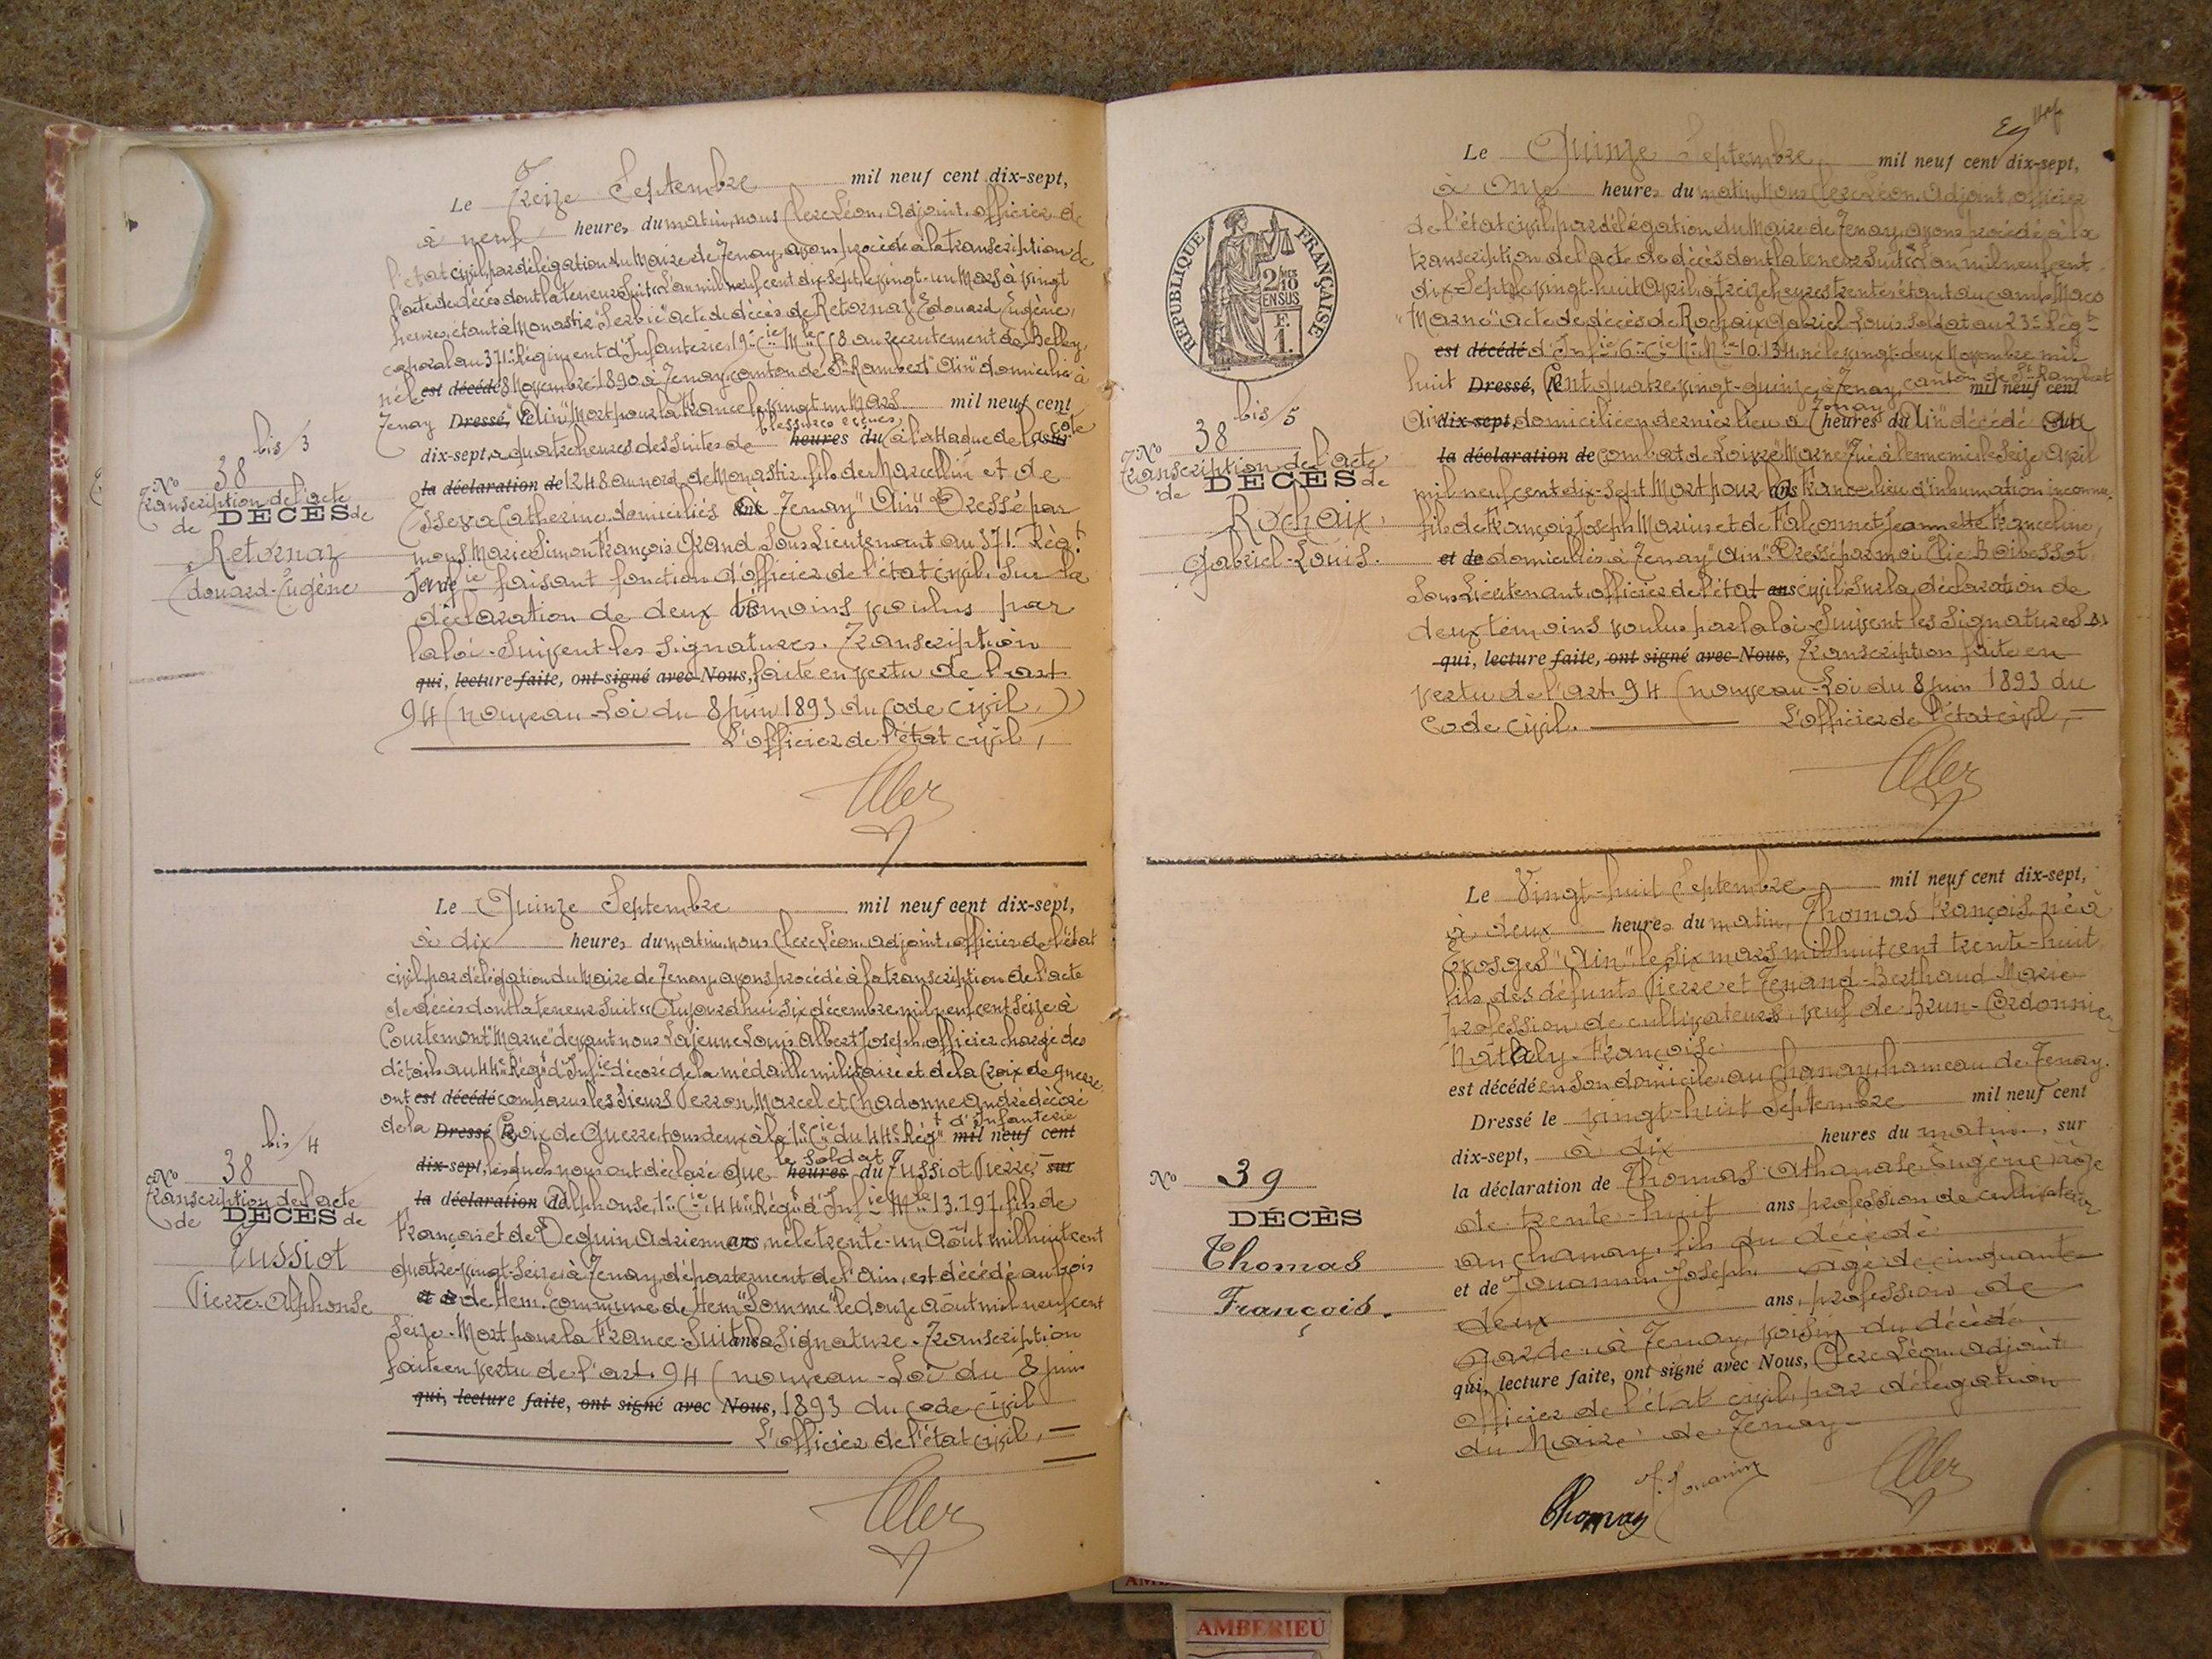 Le Treize Septembre mil neuf cent dix-sept,
à neuf heures du matin, nous Clerc Léon, adjoint, officier de
l'état civil, par délégation du Maire de Tenay, avons procédé à la transcription de
l'acte de décès dont la teneur suit « L'an mil neuf cent dix-sept, le vingt-un Mars à vingt
heures, étant à Monastir "Serbie" acte de décès de Retornaz Edouard, Eugène,
caporal au 371e Régiment d'Infanterie, 19e Cie Mle 558 au recrutement de Belley,
né le est décédé 8 Novembre 1890 à Tenay, canton de St Rambert "Ain" domicilié à
Tenay Dressé, le "Ain" Mort pour la France le vingt un Mars mil neuf cent
blessures reçues
dix-sept, à quatre heures des suites de heures du à l'attaque de la côte
la déclaration de 1248 au nord de Monastir, fils de Marcellin et de
Catherine, domiciliés à Tenay "Ain" Dressé par
nous Marie Simon François Grand, Sous Lieutenant au 371e Régt
faisant fonction d'officier de l'état civil, Sur la
déclaration de deux témoins voulus par
la loi. Suivent les signatures. Transcription
qui, lecture faite, ont signé avec Nous, faite en vertu de l'art
94 (nouveau - Loi du 8 juin 1893 du Code civil.)
L'officier de l'état civil,
bis/3
No 38
Transcription de l'acte
de DÉCÈS de
Retornaz
Edouard-Eugène
Le Quinze Septembre mil neuf cent dix-sept,
à dix heures du matin, nous Clerc Léon, adjoint, officier de l'état
civil, par délégation du Maire de Tenay, avons procédé à la transcription de l'acte
de décès dont la teneur suit « Aujourd'hui six décembre mil neuf cent seize à
Courtemont "Marne" devant nous Lajeune Louis Albert Joseph, officier chargé des
détails au 44e Régt d'Infie décoré de la médaille militaire et de la Croix de guerre,
ont est décédé comparu les sieurs Perron, Marcel et Chadonne André décoré
d'Infanterie
de la Dressé Croix de Guerre tous deux à la 1e Cie du 44e Régt mil neuf cent
le soldat
dix-sept, lesquels nous ont déclaré que heures du Tussiot Pierre sur
la déclaration de Alphonse, 1e Cie, 44e Régt d'Infie Mle 13.197, fils de
François et de Deguin Adrienne ans, né le trente-un Août mil huit cent
quatre-vingt-seize, à Tenay, département de l'Ain, est décédé au bois
et de de Hem. commune de Hem "Somme" le douze août mil neuf cent
seize. Mort pour la France. Suit ans la signature. Transcription
faite en vertu de l'art. 94 (nouveau - Loi du 8 juin
qui, lecture faite, ont signé avec Nous, 1893 du Code civil
L'officier de l'état civil,
bis/4
No 38
Transcription de l'acte
de DÉCÈS de
Tussiot
Pierre-Alphonse
Le Quinze Septembre mil neuf cent dix-sept,
à onze heures du matin, Nous Clerc Léon, Adjoint, officier
de l'état civil, par délégation du Maire de Tenay, avons procédé à la
transcription de l'acte de décès dont la teneur suit « L'an mil neuf cent
dix-sept, le vingt-huit Avril, à treize heures trente, étant au camp Maco
"Marne" acte de décès de Rochaix Gabriel Louis, Soldat au 23e Régt
est décédé d'Infie 6e Cie No Mle 10.134, né le vingt-deux Novembre mil
canton de St Rambert
huit Dressé, Cent quatre vingt-quinze, à Tenay, mil neuf cent
Tenay
Ain dix-sept, domicilié en dernier lieu à heures du "Ain" décédé au
la déclaration de combat de Loivre "Marne" Tué à l'ennemi le Seize Avril
mil neuf cent dix-sept Mort pour la France lieu d'inhumation inconnu,
fils de François Joseph Marius et de Falconnet Jeannette Francoline,
et de domiciliés à Tenay "Ain". Dressé par moi Elie Boibessot,
Sous Lieutenant, officier de l'état ans civil, Sur la déclaration de
deux témoins voulus par la loi. Suivent les signatures
qui, lecture faite, ont signé avec Nous, Transcription faite en
vertu de l'art. 94 (nouveau - Loi du 8 juin 1893 du
Code civil. L'officier de l'état civil,
RÉPUBLIQUE FRANÇAISE
2/10 EN SUS
bis/5
No 38
Transcription de l'acte
de DÉCÈS de
Rochaix,
Gabriel-Louis.
Le Vingt-huit Septembre mil neuf cent dix-sept,
à deux heures du matin, Thomas François, né à
Evosges "Ain" le six mars mil huit cent trente-huit,
fils des défunts Pierre et Tenand-Berthaud Marie
profession de cultivateur, veuf de Brun-Cordonnier
Nathaly-Françoise
est décédé en son domicile au Chanay, hameau de Tenay.
Dressé le vingt-huit Septembre mil neuf cent
dix-sept, à dix heures du matin, sur
la déclaration de Thomas Athanase Eugène âgé
de trente-huit ans, profession de cultivateur
au Chanay, fils du décédé
et de Jouannin Joseph, âgé de cinquante
deux ans, profession de
garde à Tenay, voisin du décédé
qui, lecture faite, ont signé avec Nous, Clerc Léon adjoint
officier de l'état civil, par délégation
du Maire de Tenay
Thomas
No 39
DÉCÈS
Thomas
François.
AMBERIEU